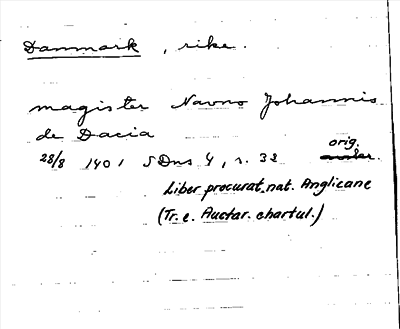 Danmark, rike.
magister Navno Johannis
de Dacia
28/8 1401 SDns 4, s. 32 orig.
Liber procurat. nat. Anglicane
(Tr. e. Auctar. chartul.)